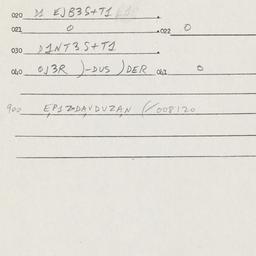 020 D1 EJB3S+T1 .
021 0 .022 0
030 D1NT3S+T1 .
040 OJ3R )-DUS )DER 041 0
900 EP1Z-DAVDUZAN (/008120